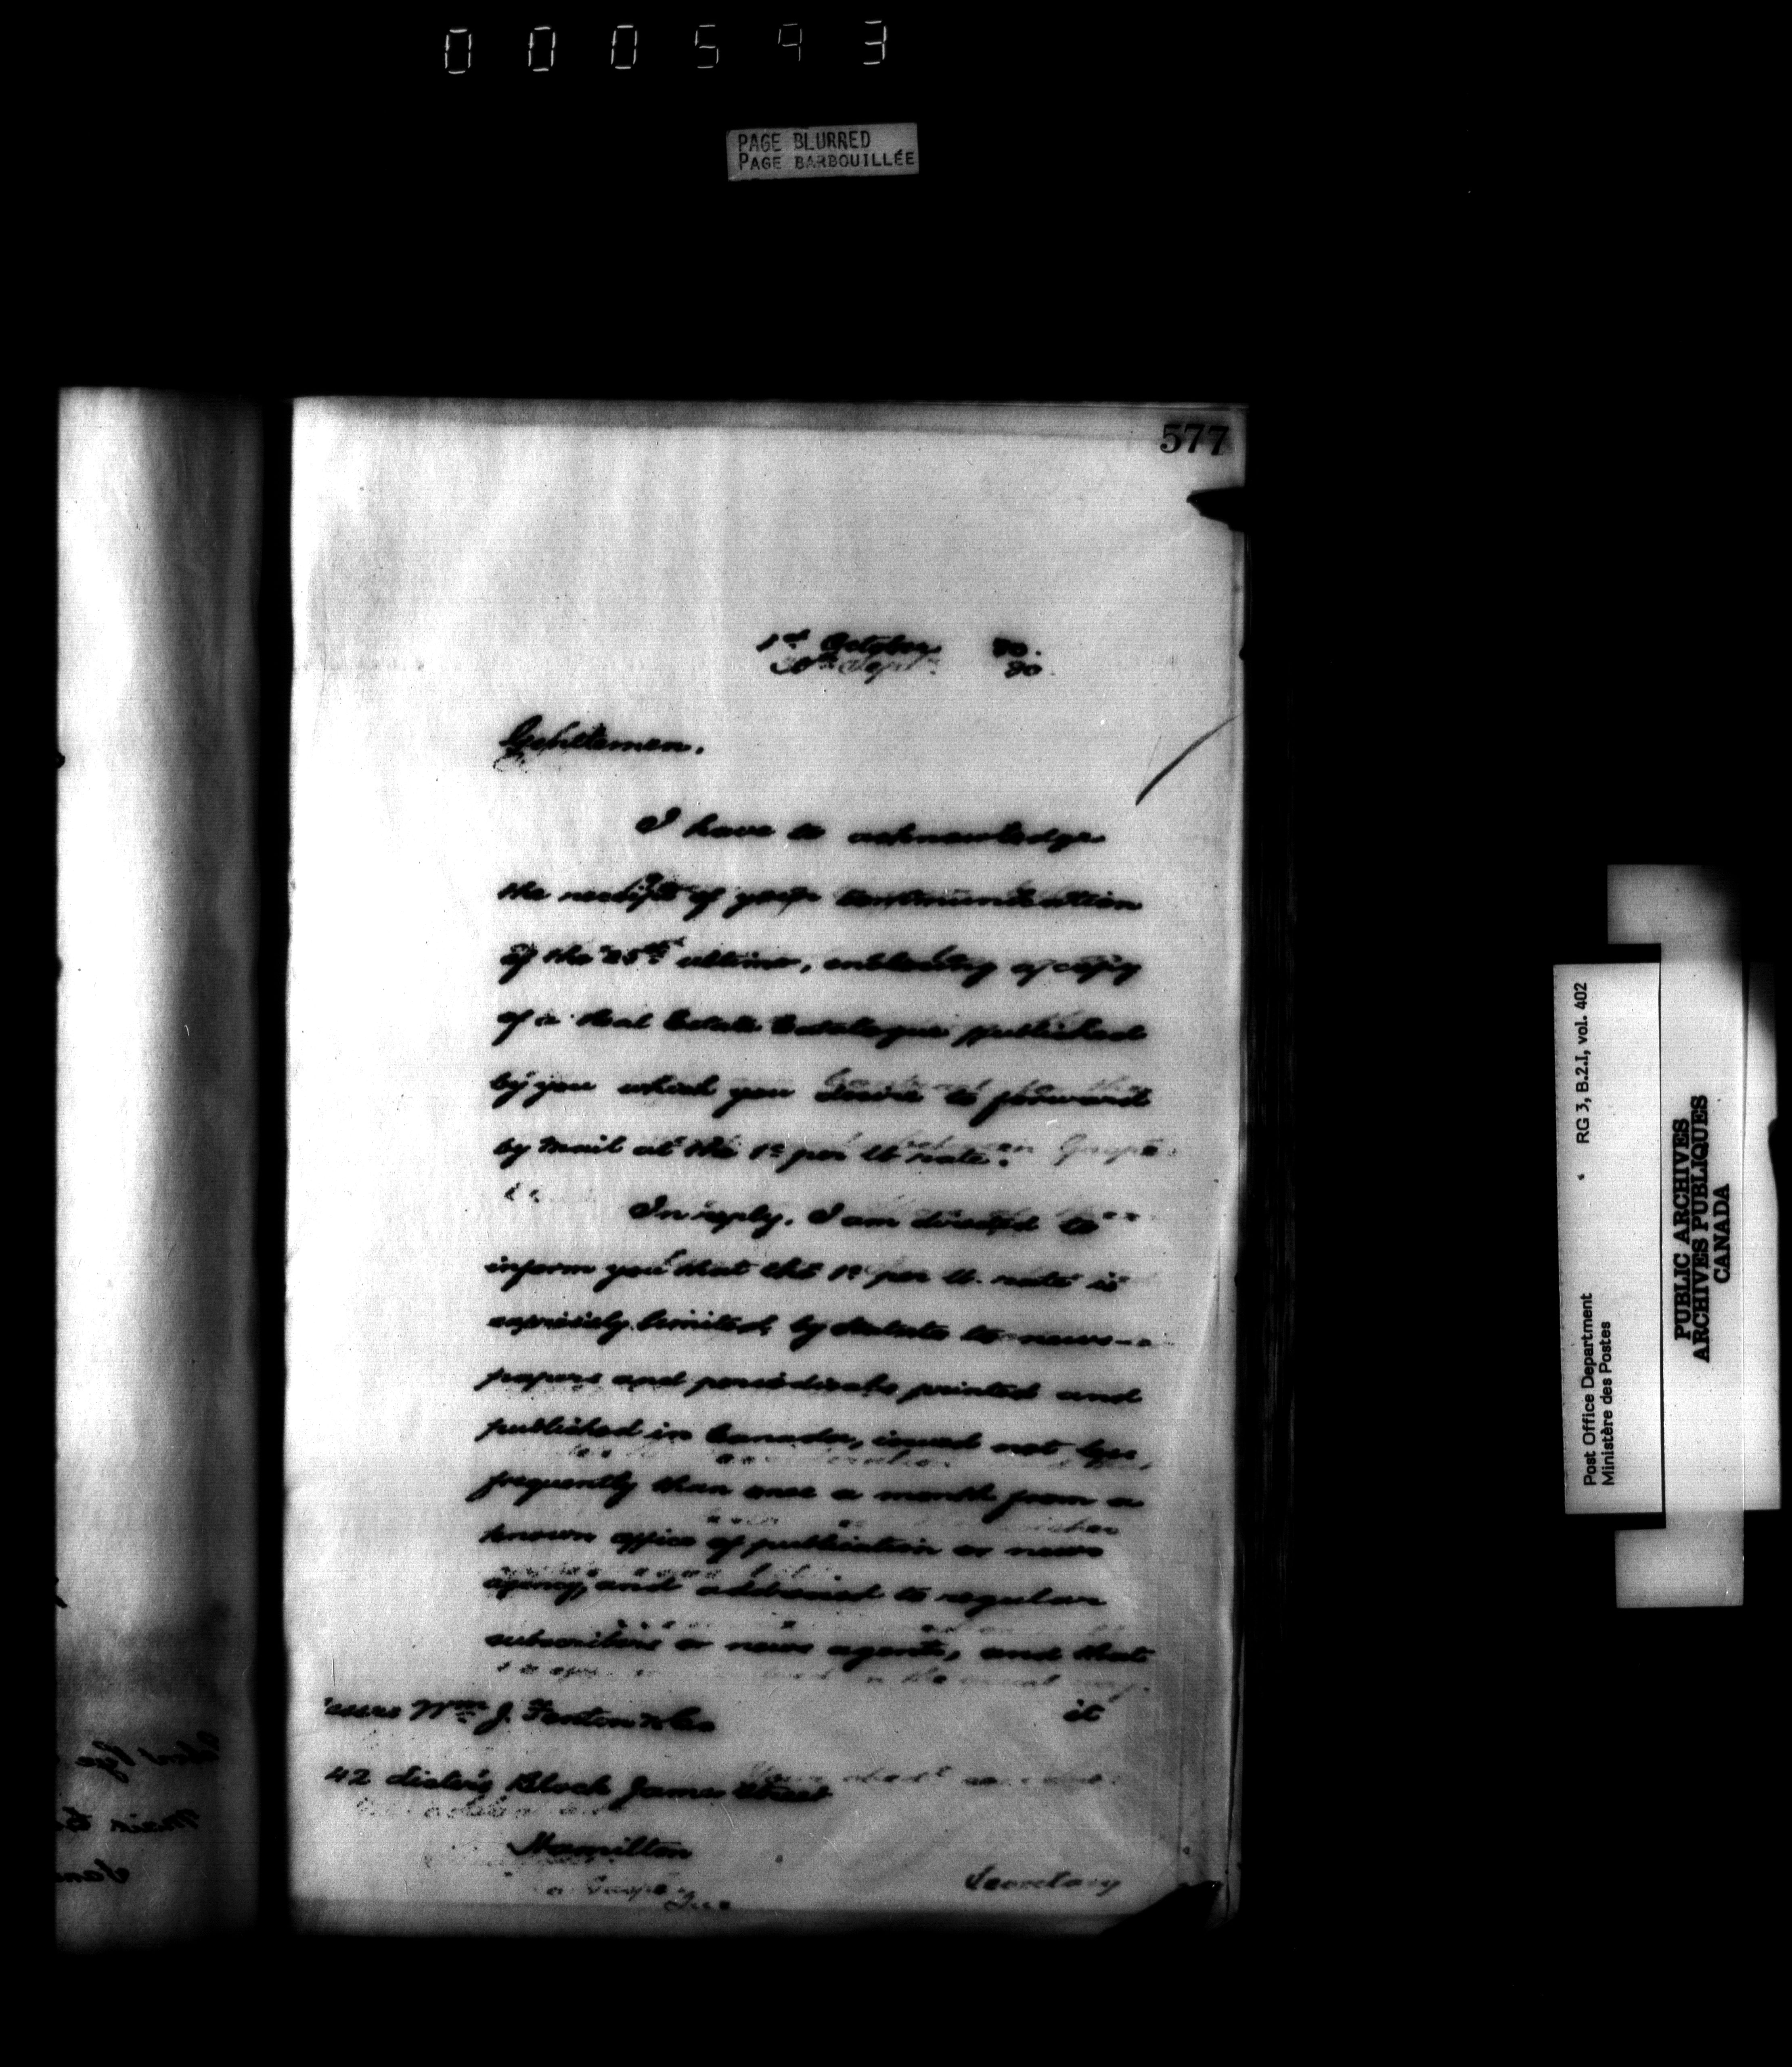 000543
PAGE BLURRED
PAGE BARBOUILLÉE
577
1st October 80.
30th Sept. 80
Gentlemen.
I have to acknowledge
the receipt of your communication
of the 25th ultimo, enclosing a copy
of a Real Estate Catalogue published
by you which you desire to forward
by mail at the 1c per lb rate.
In reply, I am directed to
inform you that the 1c per lb. rate is
expressly limited, by Statute to news-
papers and periodicals printed and
published in Canada, issued not less
frequently than once a month from a
known office of publication or news
agency, and addressed to regular
subscribers or news agents, and that
it
essrs Wm J. Fenton & Co
42 Lister's Block James Street
Hamilton
Secretary
Post Office Department RG 3, B.2.I, vol. 402
Ministère des Postes
PUBLIC ARCHIVES
ARCHIVES PUBLIQUES
CANADA